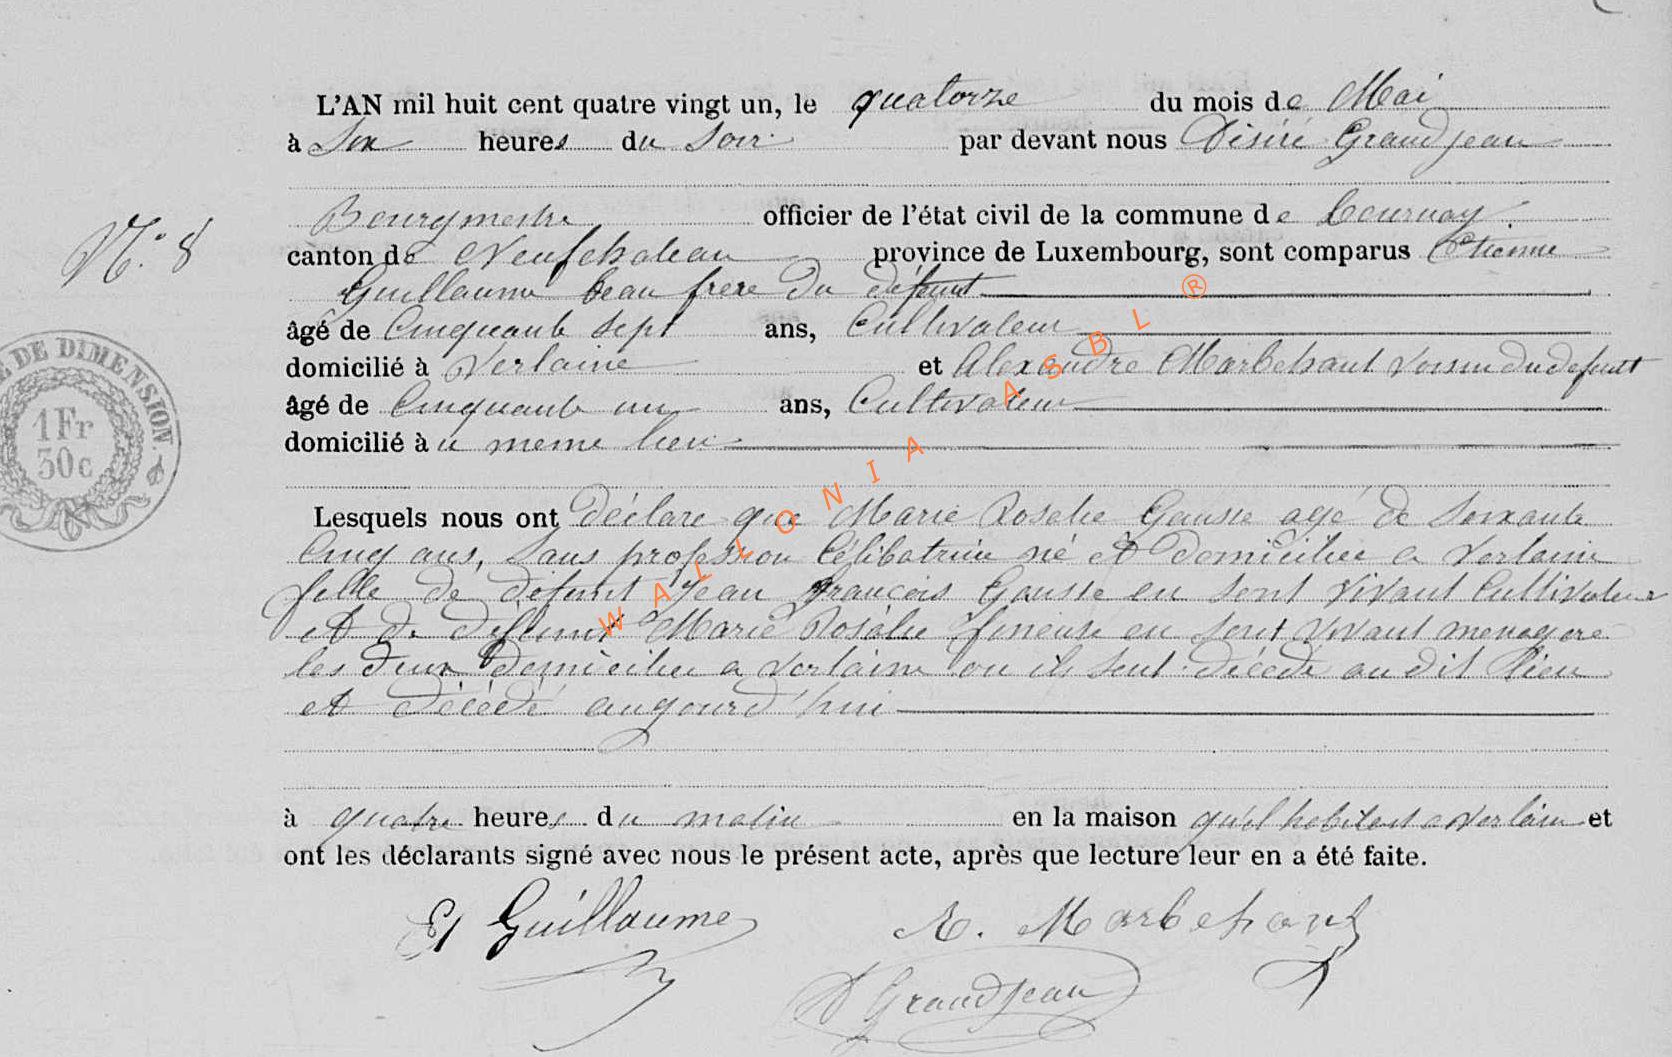 L'AN mil huit cent quatre vingt un, le quatorze du mois de Mai
à Six heures du Soir par devant nous Désiré Grandjean
Bourgmestre officier de l'état civil de la commune de Tournay
N.° 8
canton de Neufchateau province de Luxembourg, sont comparus Etienne
Guillaume beau frere du défunt
âgé de Cinquante sept ans, Cultivateur
domicilié à Verlaine et Alexandre Marbehant voisin du defunt
âgé de Cinquante un ans, Cultivateur
domicilié à u meme lieu
Lesquels nous ont déclaré que Marie Rosalie Gausse agé de Soixante
Cinq ans, Sans profession Célibatrice né et domiciliee a Verlaine
fille de défunt Jean François Gausse en sont vivant Cultivateur
et de défunt Marie Rosalie en sont vivant menagere
les deux domiciliee a Verlaine ou ils sont décédé au dit lieu
et décédé augourd'hui
à quatre heures du matin en la maison qu'el habitait a Verlaine et
ont les déclarants signé avec nous le présent acte, après que lecture leur en a été faite.
Et Guillaume A. Marbehant
D Grandjean
E DE DIMENSION.
1 Fr
50 c
WALLONIA ASBL ®